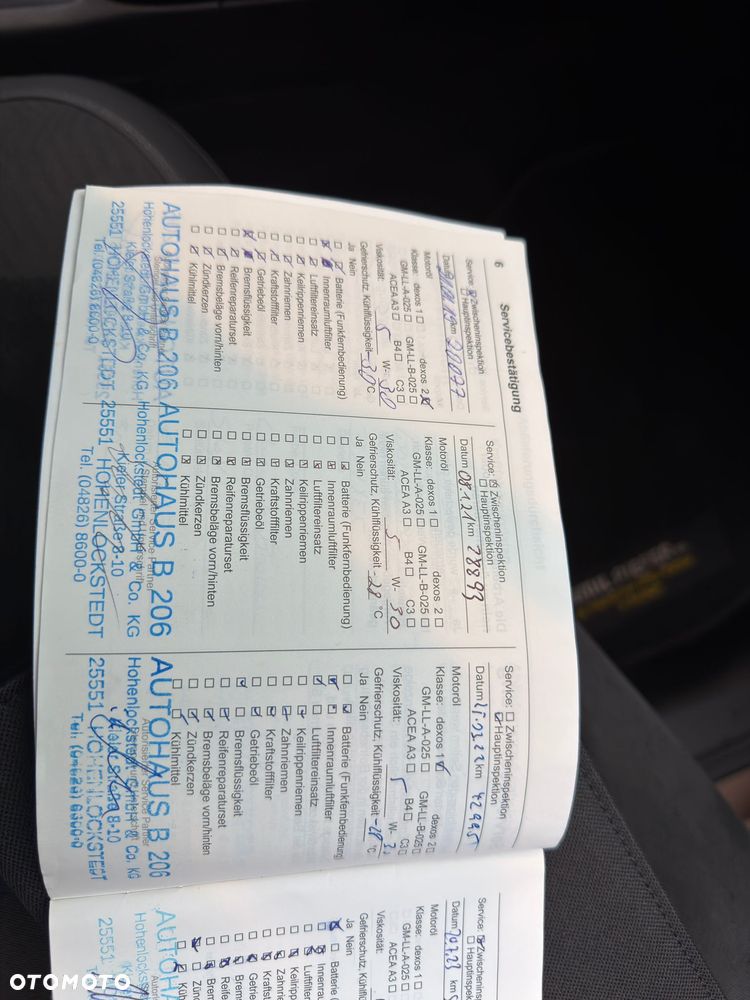 6 Servicebestätigung
Service: Zwischeninspektion
Hauptinspektion
Datum km
Motoröl
Klasse: dexos 1 dexos 2
GM-LL-A-025 GM-LL-B-025
ACEA A3 B4 C3
Viskosität: 5 W- 30
Gefrierschutz, Kühlflüssigkeit -30 °C
Ja Nein
Batterie (Funkfernbedienung)
Innenraumluftfilter
Luftfiltereinsatz
Keilrippenriemen
Zahnriemen
Kraftstofffilter
Getriebeöl
Bremsflüssigkeit
Reifenreparaturset
Bremsbeläge vorn/hinten
Zündkerzen
Kühlmittel
AUTOHAUS B. 206
Hohenlockstedt GmbH & Co. KG
Kieler Straße 8-10
25551 HOHENLOCKSTEDT
Tel. (04826) 8600-0
Service: Zwischeninspektion
Hauptinspektion
Datum 08.1.21 km 28893
Motoröl
Klasse: dexos 1 dexos 2
GM-LL-A-025 GM-LL-B-025
ACEA A3 B4 C3
Viskosität: 5 W- 30
Gefrierschutz, Kühlflüssigkeit -28 °C
Ja Nein
Batterie (Funkfernbedienung)
Innenraumluftfilter
Luftfiltereinsatz
Keilrippenriemen
Zahnriemen
Kraftstofffilter
Getriebeöl
Bremsflüssigkeit
Reifenreparaturset
Bremsbeläge vorn/hinten
Zündkerzen
Kühlmittel
AUTOHAUS B. 206
Autorisierter Service Partner
Hohenlockstedt GmbH & Co. KG
Kieler Straße 8-10
25551 HOHENLOCKSTEDT
Tel. (04826) 8600-0
Service: Zwischeninspektion
Hauptinspektion
Datum km 42995
Motoröl
Klasse: dexos 1 dexos 2
GM-LL-A-025 GM-LL-B-025
ACEA A3 B4 C3
Viskosität: 5 W-
Gefrierschutz, Kühlflüssigkeit °C
Ja Nein
Batterie (Funkfernbedienung
Innenraumluftfilter
Luftfiltereinsatz
Keilrippenriemen
Zahnriemen
Kraftstofffilter
Getriebeöl
Bremsflüssigkeit
Reifenreparaturset
Bremsbeläge vorn/hinten
Zündkerzen
Kühlmittel
AUTOHAUS B. 206
Autorisierter Service Partner
Hohenlockstedt GmbH & Co. KG
8-10
25551 HOHENLOCKSTEDT
Tel. (04826) 8600-0
Service: Zwischeninspektion
Hauptinspektion
Datum km
Motoröl
Klasse: dexos 1
GM-LL-A-025
ACEA A3
Viskosität:
Gefrierschutz, Kühlflü
Ja Nein
Batterie (
Innenrau
Luftfilter
Keilripp
Zahnrie
Kraftst
Getrie
Brem
Reife
Bren
Zün
Küh
AUTOH
Autoris
Hohenlocks
25551
OTOMOTO